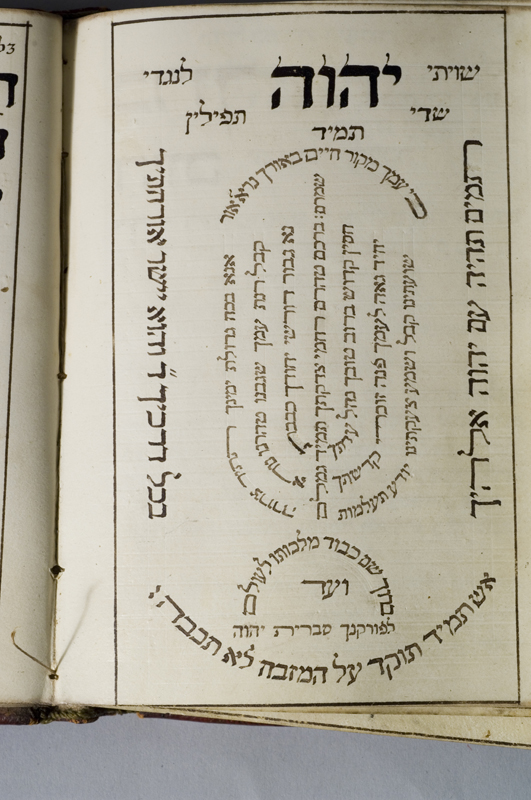 שויתי יהוה לנגדי
שדי תמיד תפילין
תמים תהיה עם יהוה אלהיך
כי עמך מקור חיים באורך נראה אור
אנא בכח גדולת ימינך תתיר צרורה
קבל רנת עמך שגבנו טהרנו נורא
נא גבור דורשי יחודך כבבת
שמרם: ברכם טהרם רחמי צדקתך תמיד גמלם
חסין קדוש ברוב טובך נהל
יחיד גאה לעמך פנה זוכרי קדשתך
קבל ושמע צעקתינו יודע תעלמות
בכל דרכיך והוא יישר אורחותיך
ברוך שם כבוד מלכותו לעולם
ועד
לפורקנך סברית יהוה
אש תמיד תוקד על המזבח לא תכבה: